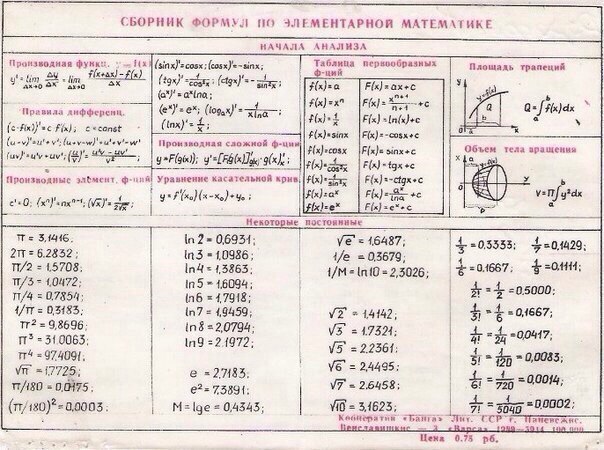 СБОРНИК ФОРМУЛ ПО ЭЛЕМЕНТАРНОЙ МАТЕМАТИКЕ
НАЧАЛА АНАЛИЗА
Производная функц. y=f(x)
y'=lim Δy/Δx = lim (f(x+Δx)-f(x))/Δx
Δx→0 Δx→0
Правила дифференц.
(c·f(x))'=c f'(x); c=const
(u-v)'=u'+v'; (u+v-w)'=u'+v'-w'
(uv)'=u'v+uv'; (u/v)'=(u'v-uv')/v²
Производные элемент. ф-ций
c'=0; (xⁿ)'=nxⁿ⁻¹; (√x)'=1/(2√x);
(sinx)'=cosx; (cosx)'=-sinx;
(tgx)'=1/cos²x; (ctgx)'=-1/sin²x;
(aˣ)'=aˣlna;
(eˣ)'=eˣ; (logₐx)'=1/(x lna)
(lnx)'=1/x;
Производная сложной ф-ции
y=F(g(x)); y'=[F(g(x))]'g(x)·g(x)'x
Уравнение касательной крив.
y=f'(x₀)(x-x₀)+y₀;
Таблица первообразных
ф-ций
f(x)=a F(x)=ax+c
f(x)=xⁿ F(x)=xⁿ⁺¹/(n+1)+c
f(x)=1/x F(x)=ln(x)+c
f(x)=sinx F(x)=-cosx+c
f(x)=cosx F(x)=sinx+c
f(x)=1/cos²x F(x)=tgx+c
f(x)=1/sin²x F(x)=-ctgx+c
f(x)=aˣ F(x)=aˣ/lna+c
f(x)=eˣ F(x)=eˣ+c
Площадь трапеций
y y=f(x)
Q
a b x
Q=∫ₐᵇf(x)dx
Объем тела вращения
y
V=П∫ₐᵇy²dx
Некоторые постоянные
π = 3,1416;
2π = 6.2832;
π/2 = 1,5708;
π/3 = 1,0472;
π/4 = 0,7854;
1/π = 0,3183;
π² = 9,8696;
π³ = 31.0063;
π⁴ = 97.4091;
√π = 1.7725;
π/180 = 0,0175;
(π/180)² = 0,0003;
ln 2 = 0,6931;
ln 3 = 1,0986;
ln 4 = 1,3863;
ln 5 = 1.6094;
ln 6 = 1,7918;
ln 7 = 1,9459;
ln 8 = 2,0794;
ln 9 = 2.1972;
e = 2,7183;
e² = 7.3891;
M = lg e = 0,4343;
√e = 1,6487;
1/e = 0,3679;
1/M = ln10 = 2,3026;
√2 = 1,4142;
√3 = 1.7321;
√5 = 2,2361;
√6 = 2,4495;
√7 = 2.6458;
√10 = 3,1623;
1/3 = 0.3333; 1/7 = 0,1429;
1/6 = 0.1667; 1/9 = 0.1111;
1/2! = 1/2 = 0,5000;
1/3! = 1/6 = 0,1667;
1/4! = 1/24 = 0,0417;
1/5! = 1/120 = 0,0083;
1/6! = 1/720 = 0,0014;
1/7! = 1/5040 = 0,0002;
Кооператив «Банга» Лит. ССР г. Паневежис.
Цена 0.75 рб.